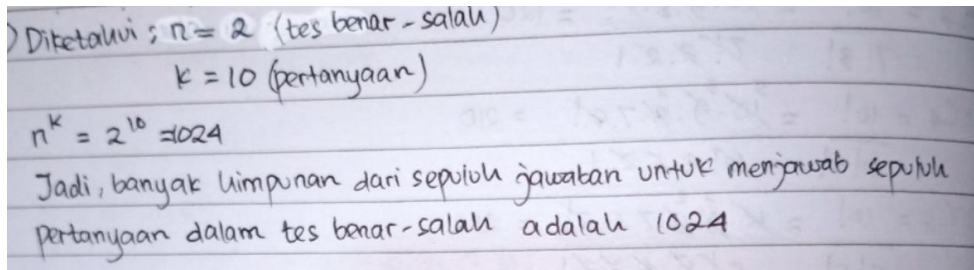 ) Diketahui : n = 2 (tes benar - salah)
k = 10 (pertanyaan)
n^k = 2^10 = 1024
Jadi, banyak himpunan dari sepuluh jawaban untuk menjawab sepuluh
pertanyaan dalam tes benar-salah adalah 1024